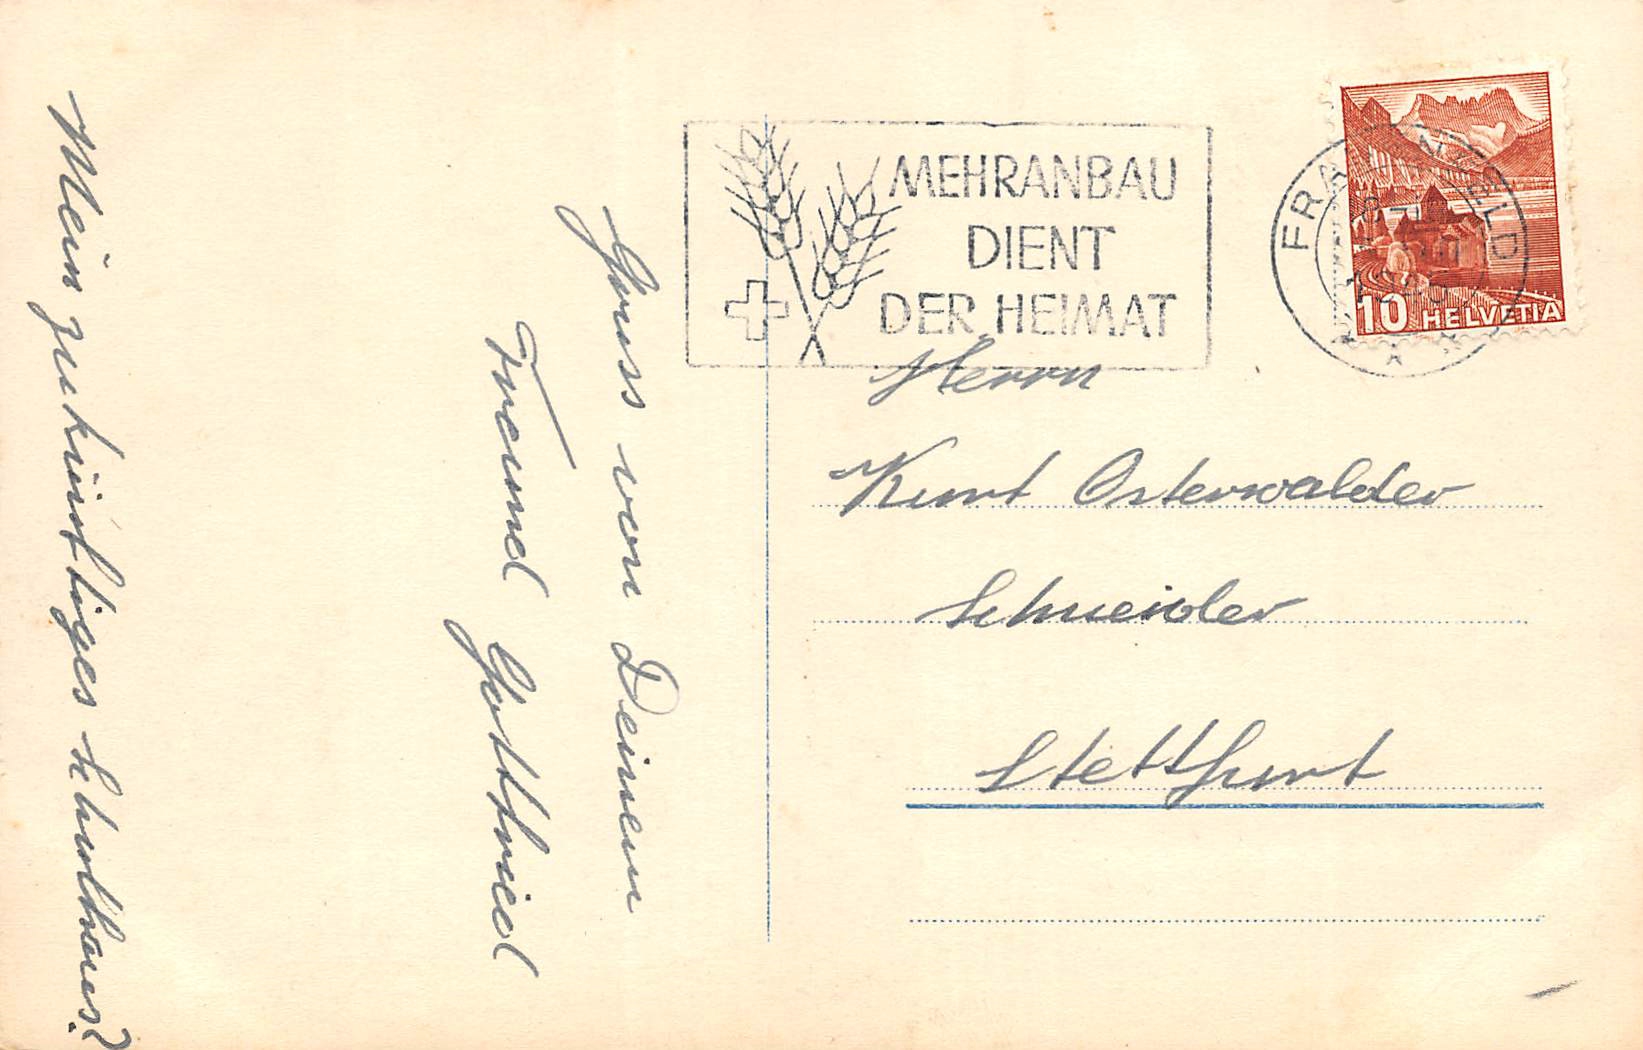 Mein zukünftiges Schulhaus?
Gruss von Deinem
Freund Gottfried
MEHRANBAU
DIENT
DER HEIMAT
FRAUENFELD
10 HELVETIA
Herrn
Kurt Osterwalder
Schneider
Stettfurt